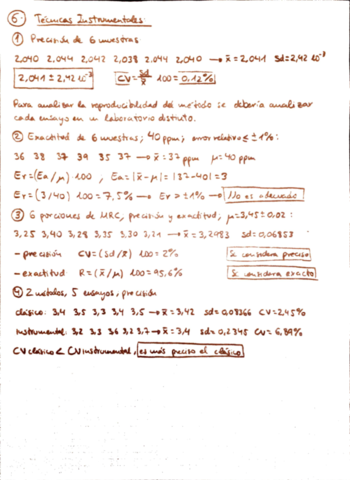 6. Técnicas Instrumentales:
① Precisión de 6 muestras
2,040 2,044 2,042 2,038 2,044 2,040 → x̄ = 2,041 sd = 2,42·10⁻³
2,041 ± 2,42·10⁻³ CV = sd/x̄ · 100 = 0,12%
Para analizar la reproducibilidad del método se debería analizar
cada ensayo en un laboratorio distinto.
② Exactitud de 6 muestras; 40 ppm; error relativo ≤ ± 1%:
36 38 37 39 35 37 → x̄ = 37 ppm μ = 40 ppm
Er = (Ea/μ) 100 , Ea = |x̄ - μ| = |37-40| = 3
Er = (3/40) 100 = 7,5% → Er > ± 1% → No es adecuado
③ 6 porciones de MRC, precisión y exactitud, μ = 3,45 ± 0,02:
3,25 3,40 3,28 3,35 3,30 → x̄ = 3,2983 sd = 0,06853
- precisión CV = (sd/x̄) 100 = 2% Se considera preciso
- exactitud R = (x̄/μ) 100 = 95,6% Se considera exacto
④ 2 métodos, 5 ensayos, precisión
clásico: 3,4 3,5 3,3 3,4 3,5 → x̄ = 3,42 sd = 0,08366 CV = 2,45%
instrumental: 3,2 3,3 3,6 3,2 3,7 → x̄ = 3,4 sd = 0,2345 CV = 6,89%
CV clásico < CV instrumental, es más preciso el clásico